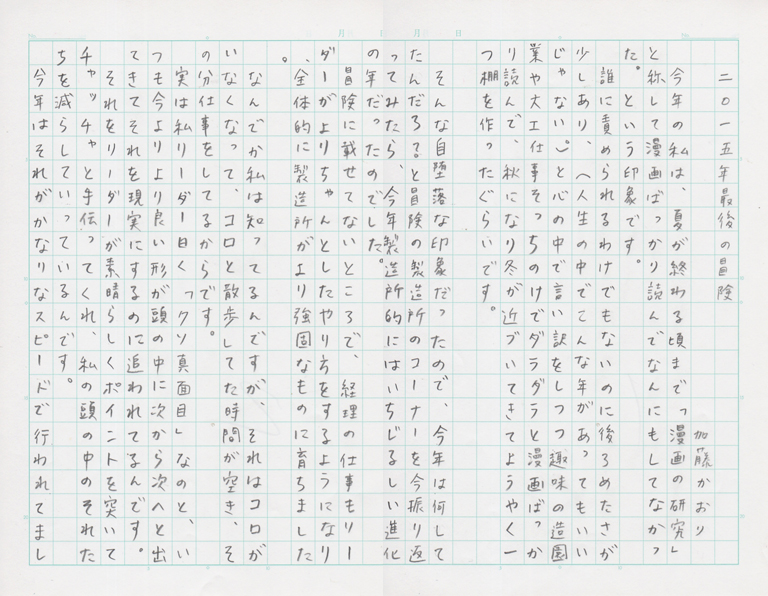 二〇一五年最後の冒険
加藤かおり
今年の私は、夏が終わる頃まで「漫画の研究」
と称して漫画ばっかり読んでなんにもしてなかっ
た。という印象です。
誰に責められるわけでもないのに後ろめたさが
少しあり、（人生の中でこんな年があってもいい
じゃない）と心の中で言い訳をしつつ趣味の造園
業や大工仕事そっちのけでダラダラと漫画ばっか
り読んで、秋になり冬が近づいてきてようやく一
つ棚を作ったぐらいです。
そんな自堕落な印象だったので、今年は何して
たんだろ？と冒険の製造所のコーナーを今振り返
ってみたら、今年製造所的にはいちじるしい進化
の年だったのでした。
冒険に載せてないところで、経理の仕事もリー
ダーがよりちゃんとしたやり方をするようになり
、全体的に製造所がより強固なものに育ちました
。
なんでか私は知ってるんですが、それはコロが
いなくなって、コロと散歩してた時間が空き、そ
の分仕事をしてるからです。
実は私リーダー曰く「クソ真面目」なのと、い
つも今よりより良い形が頭の中に次から次へと出
てきてそれを現実にするのに追われてるんです。
それをリーダーが素晴らしくポイントを突いて
チャッチャと手伝ってくれ、私の頭の中のそれた
ちを減らしていっているんです。
今年はそれがかなりなスピードで行われてまし